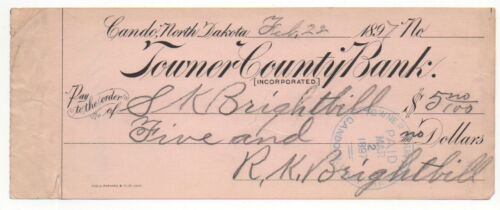 Cando, North Dakota Feb, 22 1897 No
Towner County Bank.
[INCORPORATED.]
Pay to the order of S K Brightbill $5 no/100
Five and no Dollars
R. K. Brightbill
PAID
MAR 2 189
CANDO